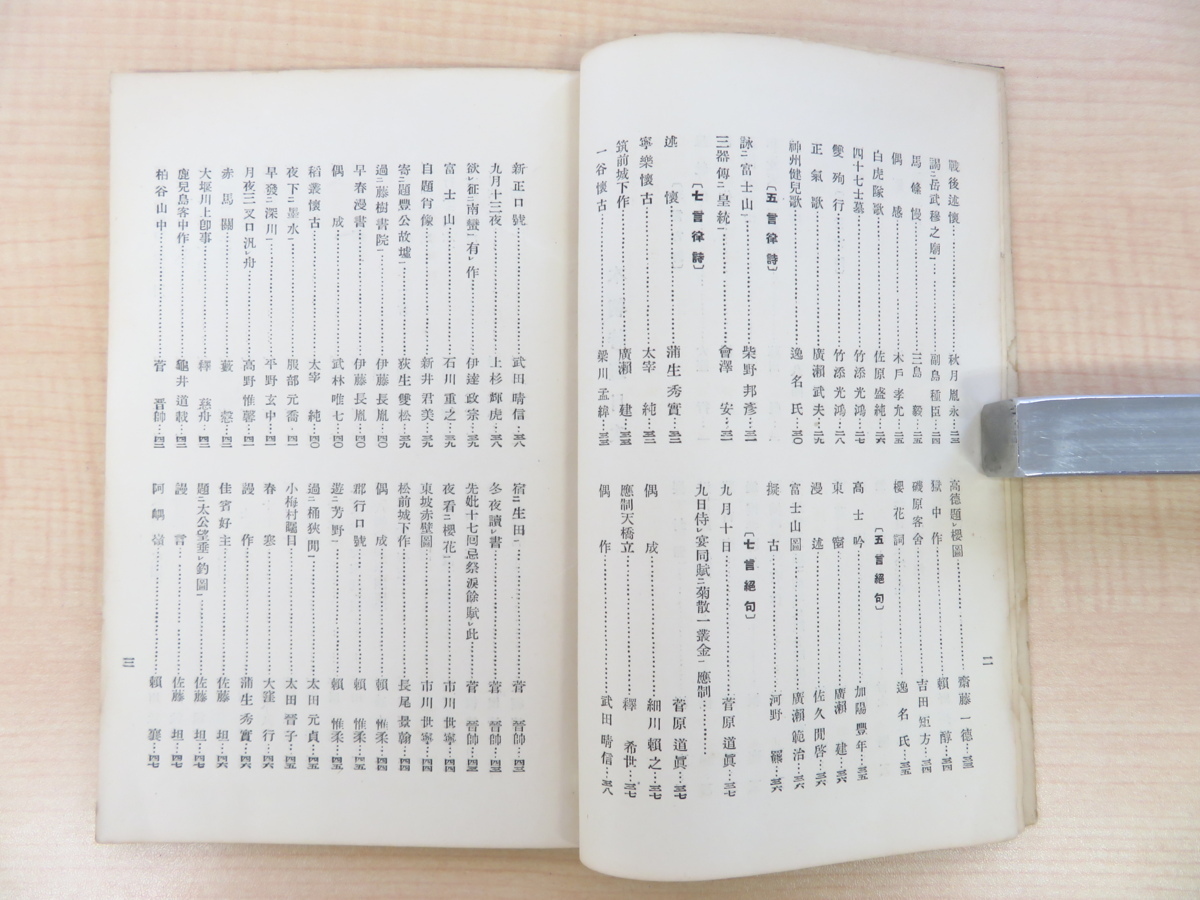 戰後述懷……秋月胤永…二三
謁二岳武穆之廟一……副島種臣…二四
馬陵慢……三島　毅…二五
偶感……木戶孝允…二五
白虎隊歌……佐原盛純…二六
四十七士墓……竹添光鴻…二七
雙殉行……竹添光鴻…二八
正氣歌……廣瀨武夫…二九
神州健兒歌……逸名氏…三〇
〔五言律詩〕
詠二富士山一……柴野邦彥…三一
三器傳二皇統一……會澤　安…三一
〔七言律詩〕
述懷……蒲生秀實…三二
寧樂懷古……太宰　純…三二
筑前城下作……廣瀨　建…三三
一谷懷古……梁川孟緯…三三
高德題レ櫻圖……齋藤一德…三三
獄中作……賴　醇…三四
磯原客舍……吉田矩方…三四
櫻花詞……逸名氏…三五
〔五言絕句〕
高士吟……加陽豐年…三五
東窗……廣瀨　建…三六
漫述……佐久間啓…三六
富士山圖……廣瀨範治…三六
擬古……河野　羆…三六
〔七言絕句〕
九月十日……菅原道眞…三七
九日侍レ宴同賦二菊散一叢金一應制……
菅原道眞…三七
偶成……細川賴之…三七
應制天橋立……釋　希世…三七
偶作……武田晴信…三八
二
新正口號……武田晴信…三八
九月十三夜……上杉輝虎…三八
欲レ征二南蠻一有レ作……伊達政宗…三九
富士山……石川重之…三九
自題肖像……新井君美…三九
寄二題豐公故墟一……荻生雙松…三九
過二藤樹書院一……伊藤長胤…四〇
早春漫書……伊藤長胤…四〇
偶成……武林唯七…四〇
稻叢懷古……太宰　純…四〇
夜下二墨水一……服部元喬…四一
早發二深川一……平野玄中…四一
月夜三叉口汎レ舟……高野惟馨…四一
赤馬關……藪　愨…四一
大堰川上卽事……釋　慈舟…四二
鹿兒島客中作……龜井道載…四二
柏谷山中……菅　晋帥…四二
宿二生田一……菅　晋帥…四三
冬夜讀レ書……菅　晋帥…四三
先妣十七囘忌祭淚餘賦レ此……菅　晋帥…四三
夜看二櫻花一……市川世寧…四四
東坡赤壁圖……市川世寧…四四
松前城下作……長尾景翰…四四
偶成……賴　惟柔…四四
郡行口號……賴　惟柔…四五
遊二芳野一……賴　惟柔…四五
過二桶狹間一……太田元貞…四五
小梅村矚目……太田晉子…四五
春寒……大窪　行…四六
漫作……蒲生秀實…四六
佳賓好主……佐藤　坦…四六
題二太公望垂レ釣圖一……佐藤　坦…四七
謾言……佐藤　坦…四七
阿嵎嶺……賴　襄…四七
三